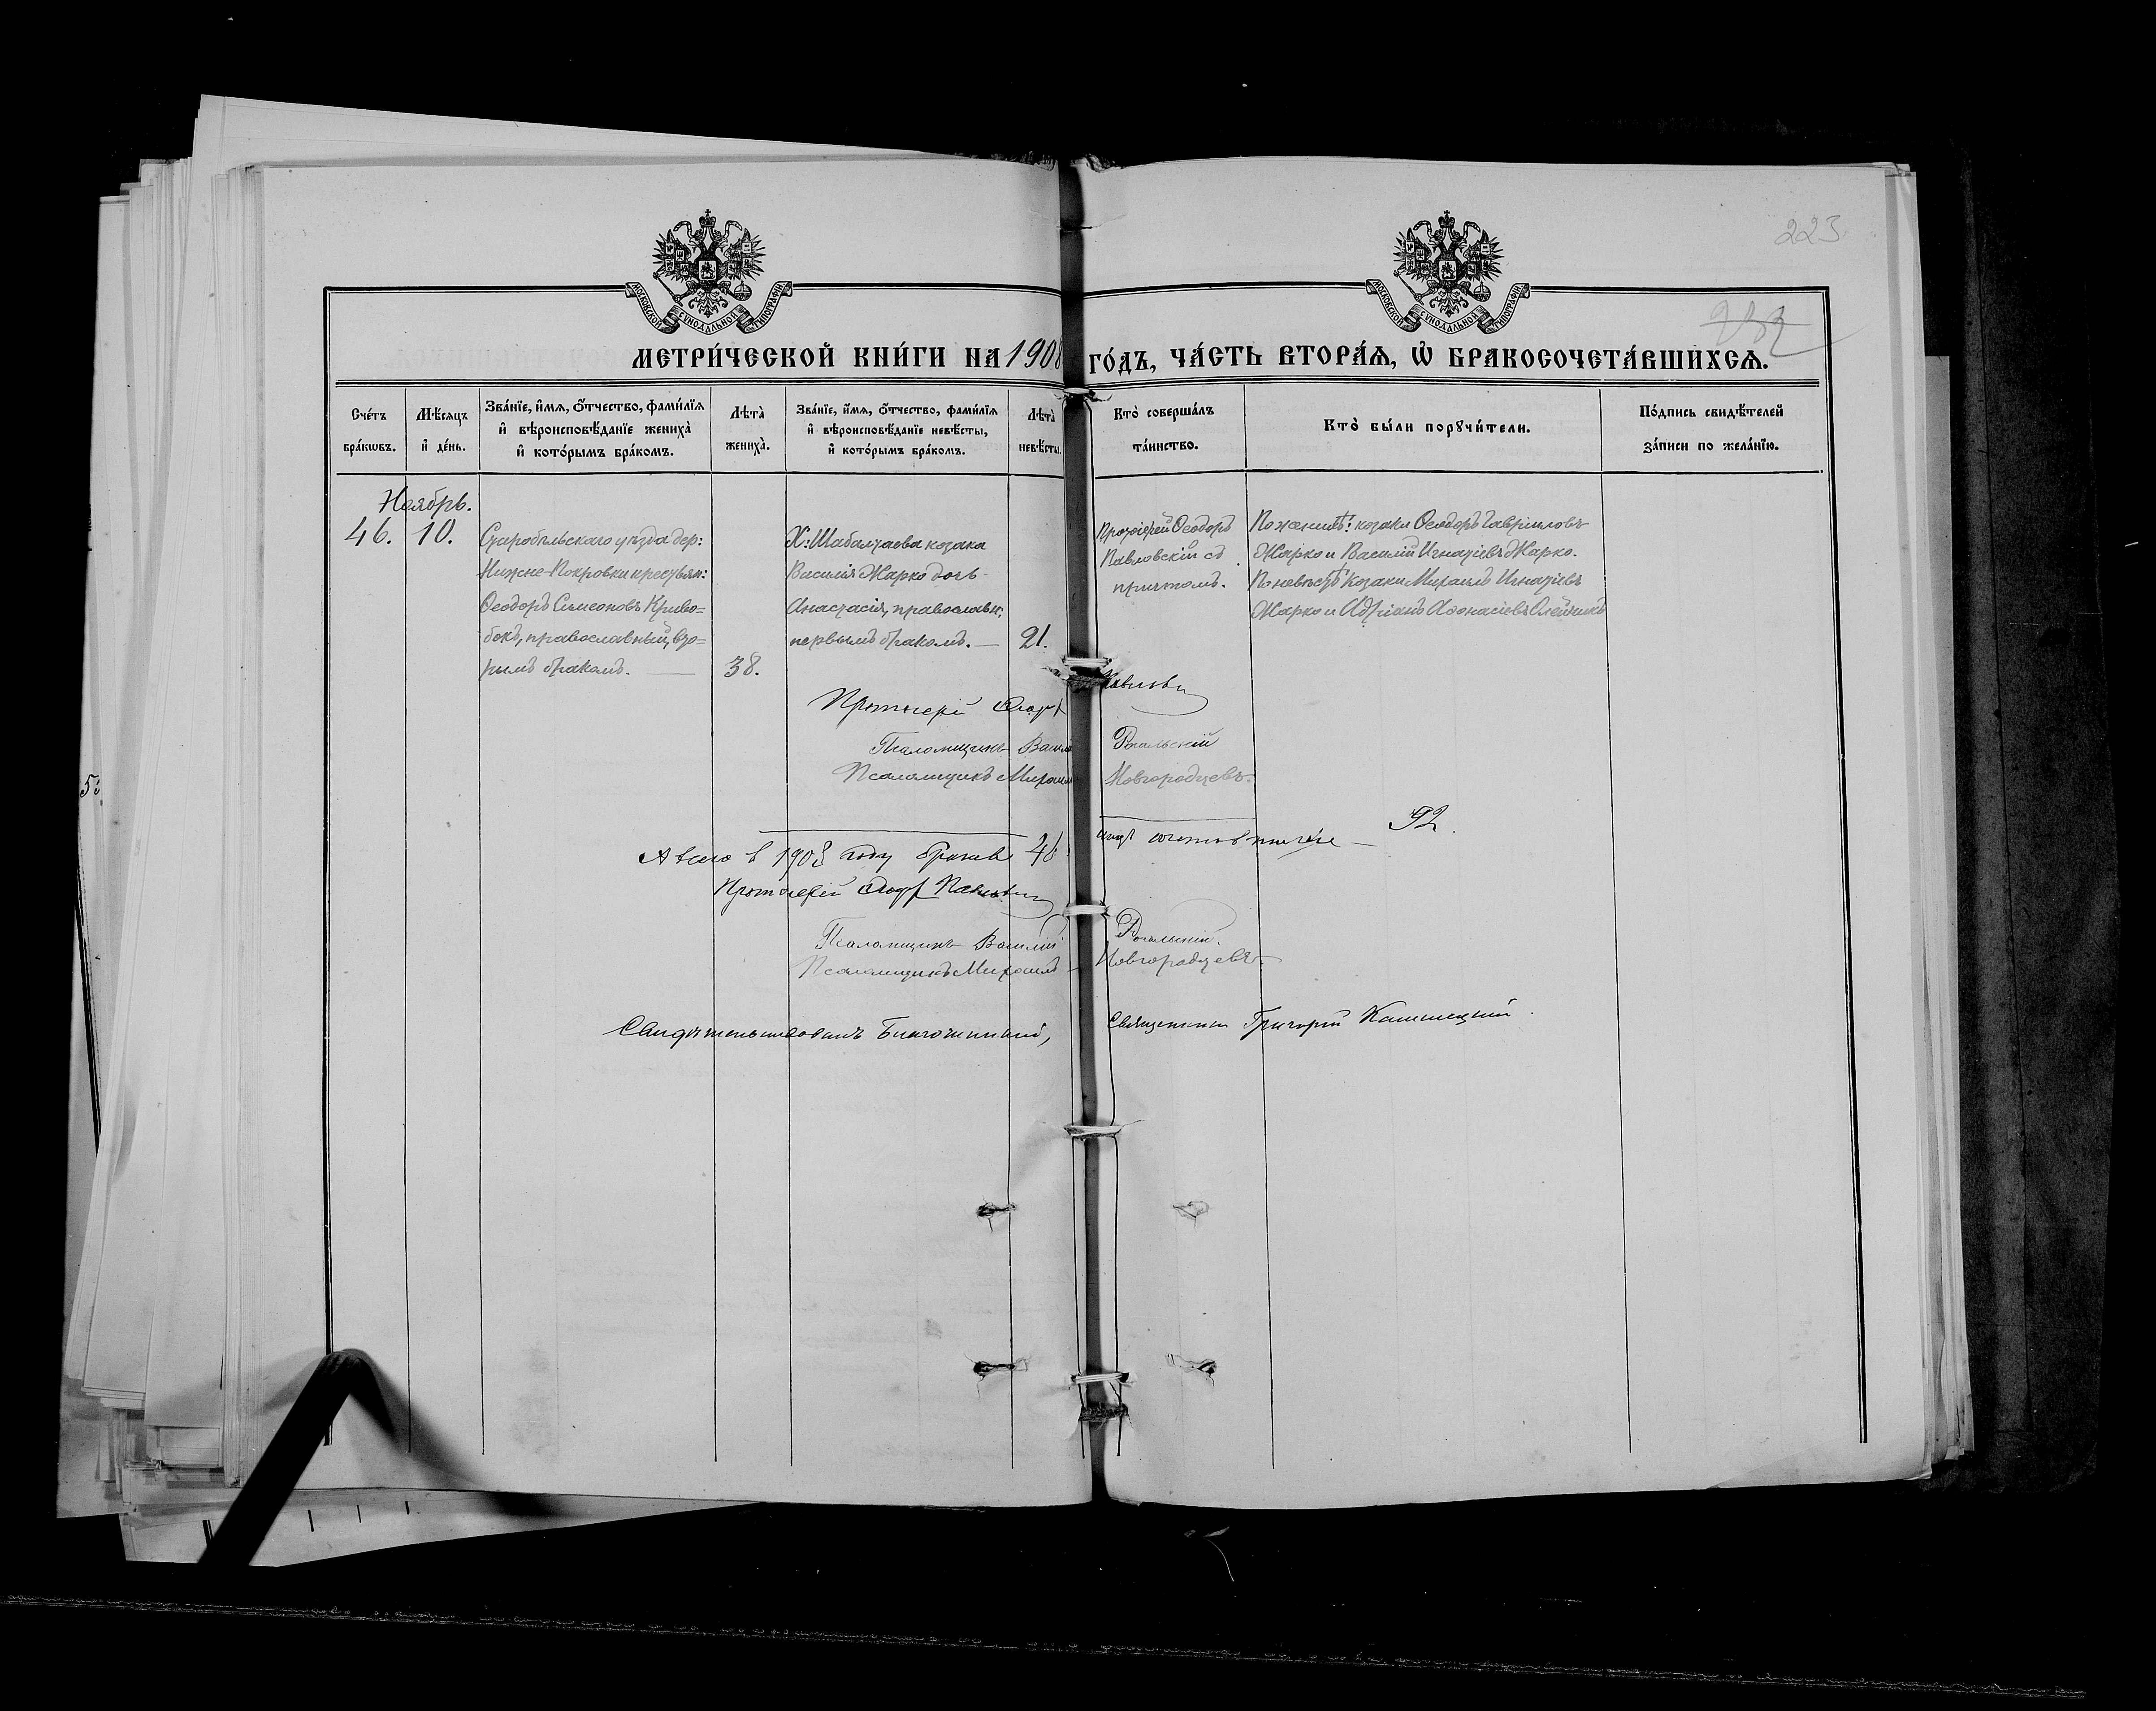 223.
МОСКОВСКОЙ СѴНОДАЛЬНОЙ ТИПОГРАФІИ
МОСКОВСКОЙ СѴНОДАЛЬНОЙ ТИПОГРАФІИ
МЕТРИ́ЧЕСКОЙ КНИ́ГИ НА 1908 ГО́ДЪ, ЧА́СТЬ ВТОРА́Ѧ, Ѽ БРАКОСОЧЕТА́ВШИХСѦ.
Сче́тъ бра́кѡвъ.
Мѣ́сѧцъ и҆ де́нь.
Зва́нїе, и҆́мѧ, ѻ҆́тчество, фами́лїѧ и҆ вѣроисповѣ́данїе жениха̀ и҆ кото́рымъ бра́комъ.
Лѣта̀ жениха̀.
Зва́нїе, и҆́мѧ, ѻ҆́тчество, фами́лїѧ и҆ вѣроисповѣ́данїе невѣ́сты, и҆ кото́рымъ бра́комъ.
Лѣта̀ невѣ́сты.
Кто̀ соверша́лъ та́инство.
Кто̀ бы́ли порꙋчи́тели.
По́дпись свидѣ́телей за́писи по жела́нїю.
Ноябрь.
46. 10.
Старобѣльскаго уѣзда дер:
Нижне-Покровки крестьян:
Ѳеодоръ Симеоновъ Криво=
бокъ, православный, вто=
рымъ бракомъ. —
38.
Х: Шабалтаева козака
Василія Жарко дочь
Анастасія, православн:
первымъ бракомъ. —
21.
Протоіерей Ѳеодоръ
Павловскій съ
причтомъ.
По женихѣ: козаки Ѳеодоръ Гавріиловъ
Жарко и Василій Игнатіевъ Жарко.
По невѣстѣ козаки Михаилъ Игнатіевъ
Жарко и Адріанъ Аѳонасіевъ Олейникъ
Протоіерей Ѳеодоръ Павловскій
Псаломщикъ Василій Рогальскій
Псаломщикъ Михаилъ Новгородцевъ.
А всего в 1908 году браковъ 46
92.
Протоіерей Ѳеодоръ Павловскій
Псаломщикъ Василій Рогальскій.
Псаломщикъ Михаилъ Новгородцевъ.
Свидѣтельствовалъ Благочинный, Священникъ Григорій